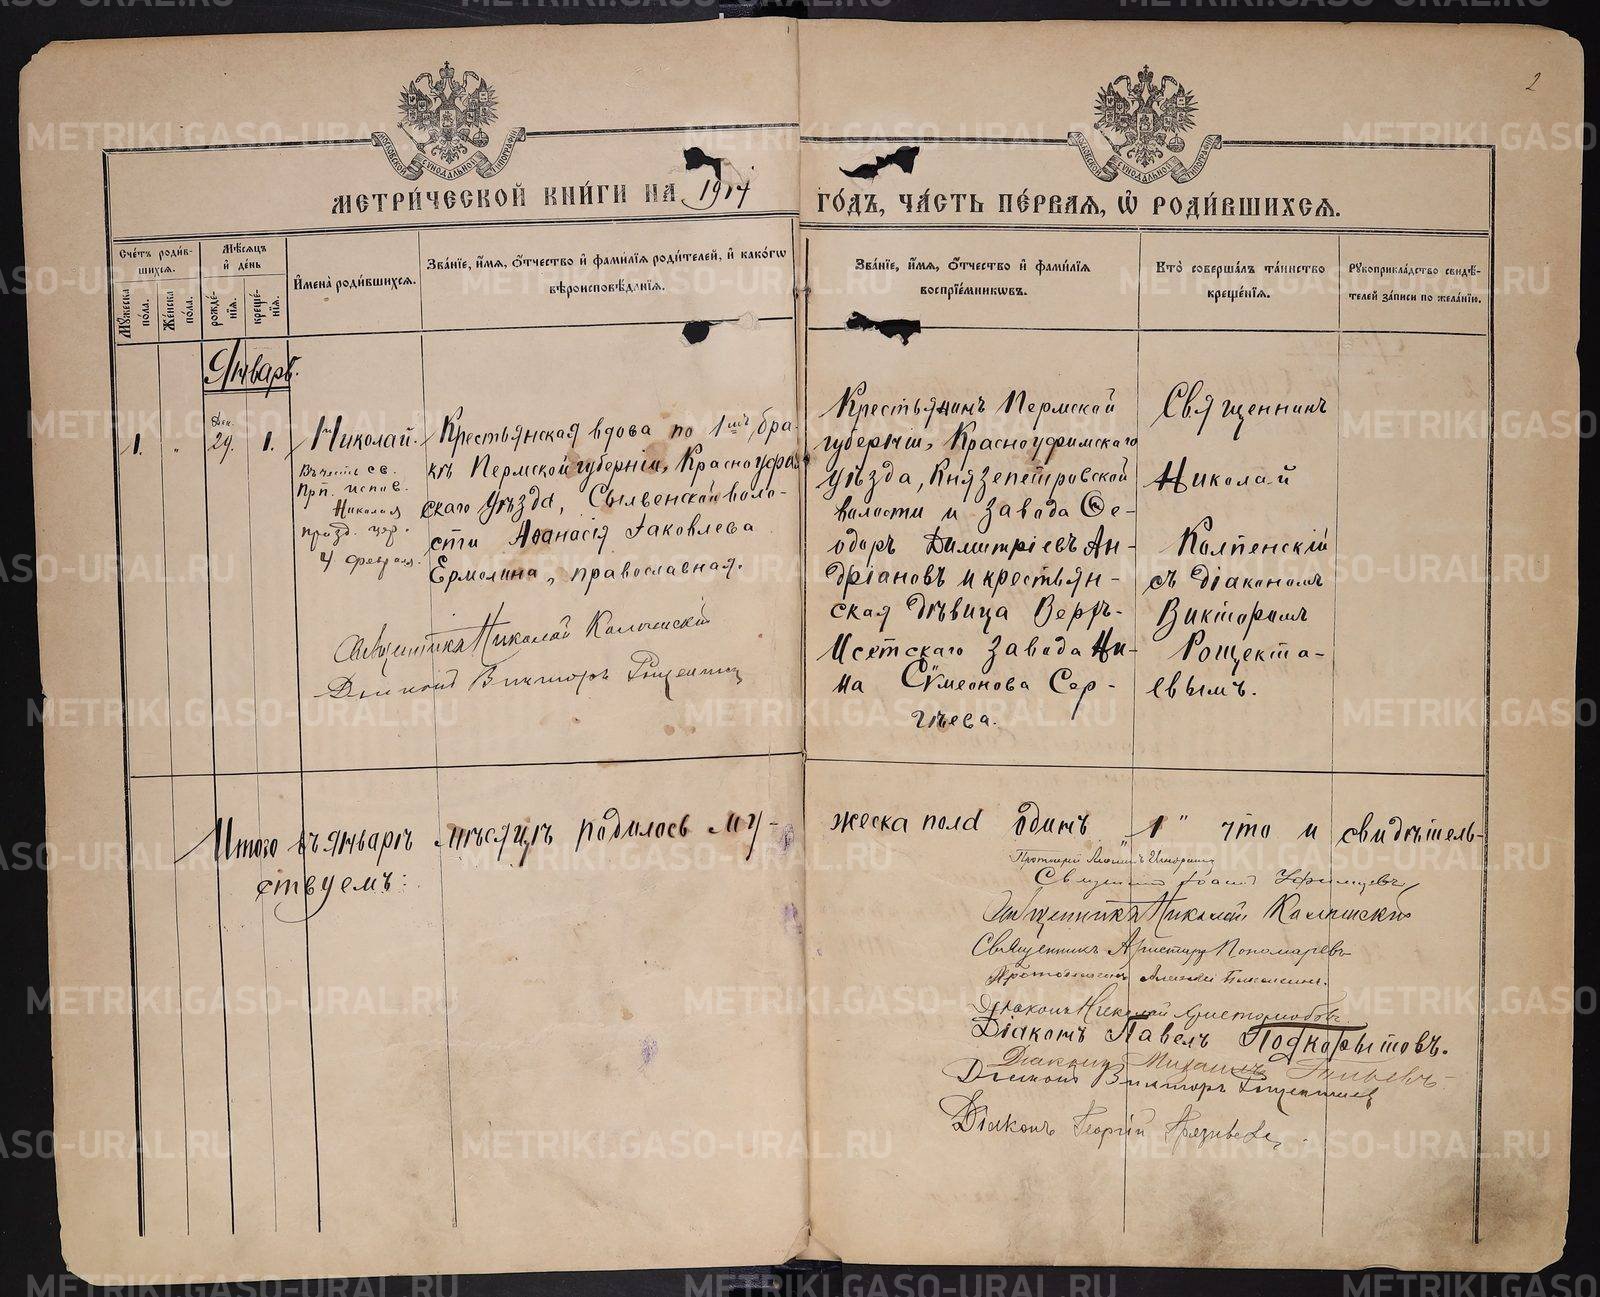 2
МОСКОВСКОЙ СѴНОДАЛЬНОЙ ТИПОГРАФІИ
МОСКОВСКОЙ СѴНОДАЛЬНОЙ ТИПОГРАФІИ
МЕТРИ́ЧЕСКОЙ КНИ́ГИ НА 1914 ГО́ДЪ, ЧА́СТЬ ПЕ́РВАЯ, Ѡ҆ РОДИ́ВШИХСЯ.
Сче́тъ роди́в-
шихся.
Мꙋ́жеска по́ла.
Же́нска по́ла.
Мѣ́сяцъ
и҆ де́нь
рожде́-
нїѧ.
креще́-
нїѧ.
И҆мена̀ роди́вшихся.
Зва́нїе, и҆́мя, ѻ҆́тчество и҆ фами́лїя роди́телей, и҆ како́гѡ
вѣроисповѣ́данїя.
Зва́нїе, и҆́мя, ѻ҆́тчество и҆ фами́лїя
воспрїе́мникѡвъ.
Кто̀ соверша́лъ та́инство
креще́нїя.
Рꙋкоприкла́дство свидѣ́-
телей за́писи по жела́нїю.
Январь.
1.
"
Дек.
29.
1.
Николай.
Въ честь св.
Прп. испов.
Николая
празд. цер.
4 февраля.
Крестьянская вдова по 1мъ бра-
кѣ Пермской губерніи, Красноуфим
скаго уѣзда, Сылвенской воло-
сти Аѳанасія Іаковлева
Ермолина, православная.
Священникъ Николай Колпенскій
Діаконъ Викторъ Рощектаев
Крестьянинъ Пермской
губерніи, Красноуфимскаго
уѣзда, Князепетровской
волости и завода Ѳе-
одоръ Димитріевъ Ан-
дріановъ и крестьян-
ская дѣвица Верхъ-
Исетскаго завода Ни-
на Сѵмеонова Сер-
гѣева.
Священникъ
Николай
Колпенскій
съ діакономъ
Викторомъ
Рощекта-
евымъ.
Итого въ Январѣ мѣсяцѣ родилось му-
жеска пола одинъ "1" что и свидѣтель-
ствуемъ:
Священникъ Іоаннъ Уфимцевъ
Священникъ Николай Колпенскій
Священникъ Аристархъ Пономаревъ
Діаконъ Николай Аристоваловъ
Діаконъ Павелъ Подкорытовъ.
Діаконъ Михаилъ
Діаконъ Викторъ Рощектаев
Діаконъ Георгій
METRIKI.GASO-URAL.RU